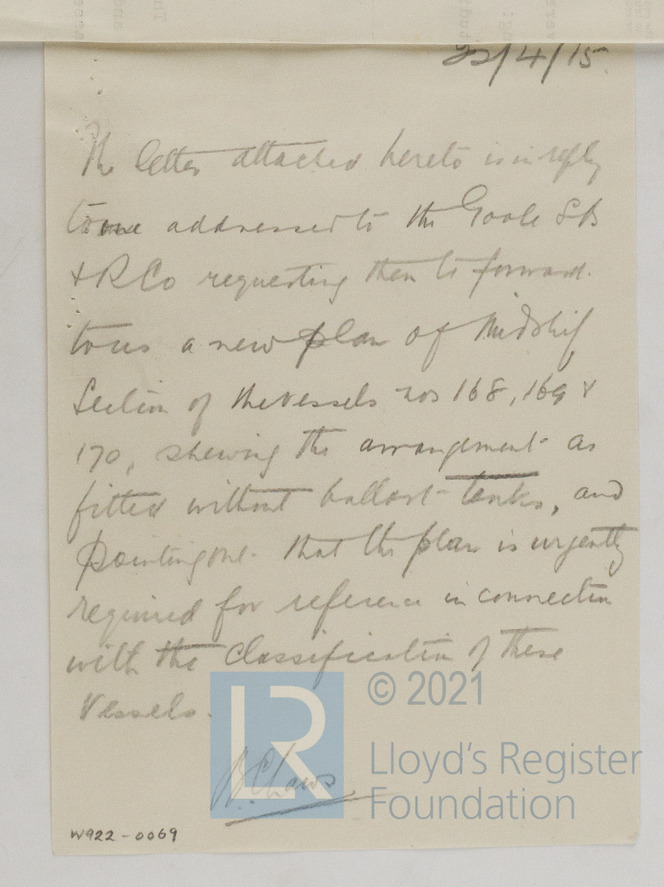 22/4/15.
The letter attached hereto is in reply
to one addressed to the Goole SB
& R Co requesting them to forward
to us a new plan of Midship
Section of the vessels nos 168, 169 &
170, shewing the arrangement as
fitted without ballast tanks, and
pointing out that the plan is urgently
required for reference in connection
with the classification of these
Vessels.
© 2021
LR
Lloyd's Register
Foundation
W922-0069